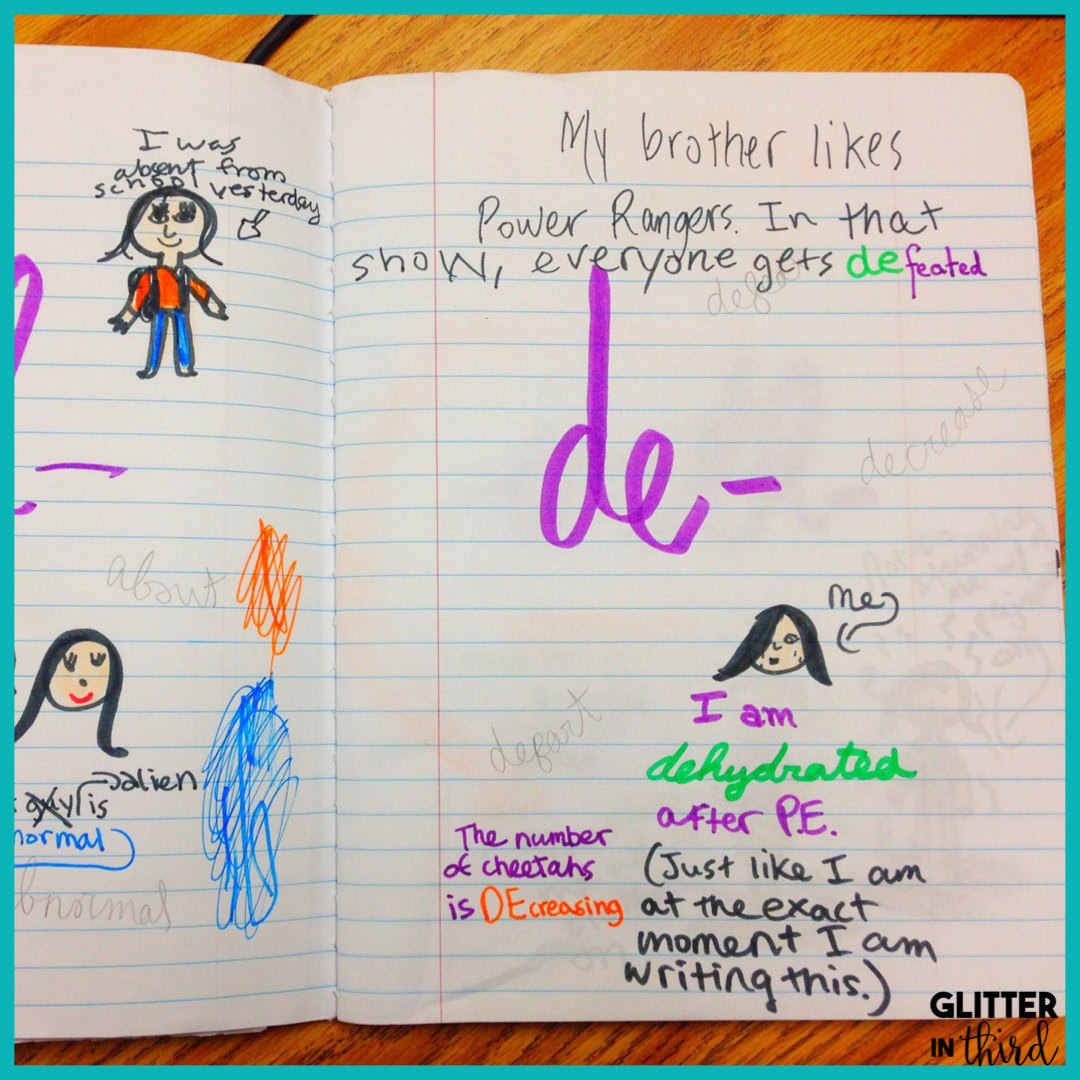 I was
absent from
school yesterday
about
alien
is
normal
bnormal
My brother likes
Power Rangers. In that
show, everyone gets defeated
defeat
de-
decrease
Me
I am
dehydrated
after P.E.
(Just like I am
at the exact
moment I am
writing this.)
depart
The number
of cheetahs
is DEcreasing
GLITTER
IN third